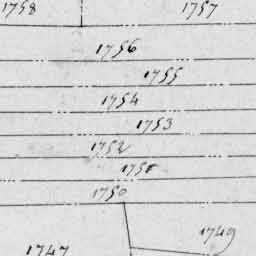 1758 1757
1756
1755
1754
1753
1752
1751
1750
1749
1747